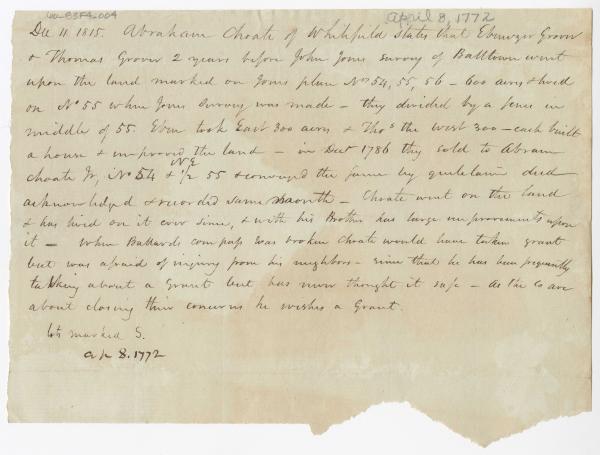 April 8, 1772
Dec 11. 1815. Abraham Choate of Whitefield States that Ebenezer Grover
& Thomas Grover 2 years before John Jones survey of Balltown went
upon the land marked on Jones plan Nos 54, 55, 56 - 600 acres & lived
on No 55 when Jones Survey was made - they divided by a fence in
middle of 55. Eben took East 300 acres & Thos the west 300 - each built
a house & improved the land - in Decr 1786 they sold to Abram
Choate Jr, No 54 & N.E 1/2 55 & conveyed the same by quitclaim deed
acknowledged & recorded same month - Choate went on the land
& has lived on it ever since, & with his Brother has large improvements upon
it - When Ballards compass was broken Choate would have taken grant
but was afraid of injury from his neighbors - since that he has been frequently
talking about a Grant but has never thought it safe - as the Co are
about closing their concerns he wishes a Grant.
lots marked S.
ap 8. 1772